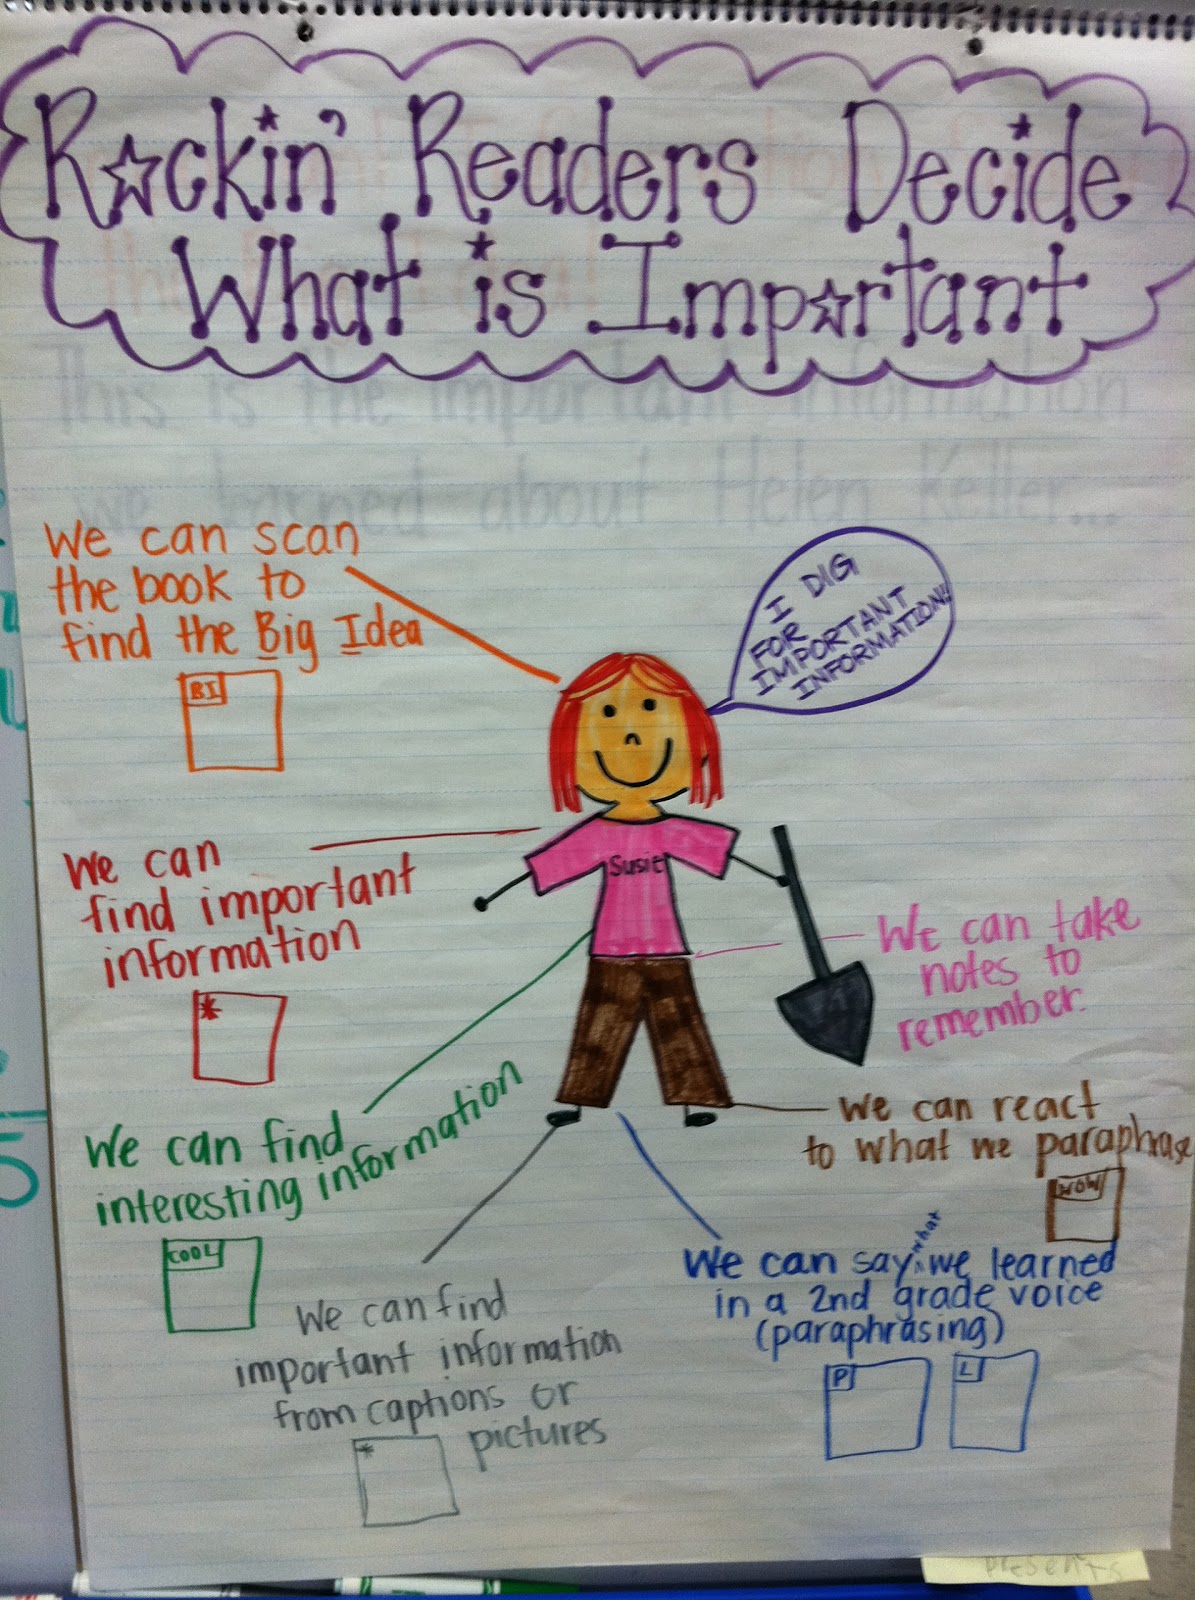 Rockin' Readers Decide
What is Important
This is the important information
we learned about Helen Keller...
We can scan
the book to
find the Big Idea
BI
I DIG
FOR
IMPORTANT
INFORMATION!!
Susie
We can
find important
information
*
We can take
notes to
remember.
We can find
interesting information
COOL
We can react
to what we paraphrase
WOW
We can find
important information
from captions or
pictures
*
We can say what we learned
in a 2nd grade voice
(paraphrasing)
P
L
presents